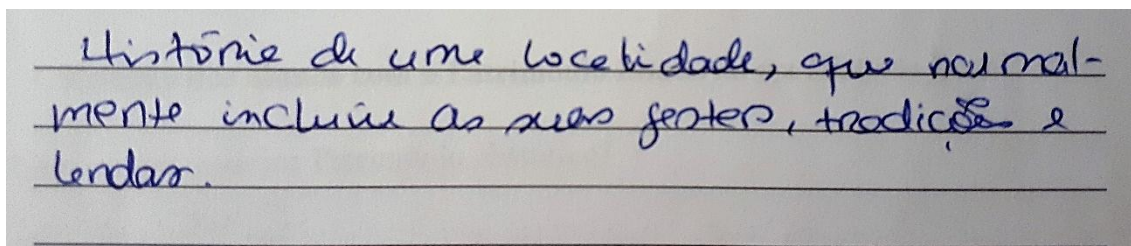 História de uma localidade, que normal-
mente incluiu as suas festas, tradições e
lendas.